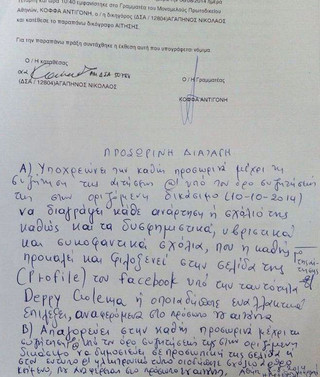 Σήμερα και ώρα 10:40 εμφανίσθηκε στο Γραμματέα του Μονομελούς Πρωτοδικείου
Αθηνών, ΚΟΦΦΑ ΑΝΤΙΓΟΝΗ, ο/η δικηγόρος (ΔΣΑ / 12804)ΑΓΑΠΗΝΟΣ ΝΙΚΟΛΑΟΣ
και κατέθεσε το παραπάνω δικόγραφο ΑΙΤΗΣΗΣ.
Για την παραπάνω πράξη συντάχθηκε η έκθεση αυτή που υπογράφεται νόμιμα.
Ο / Η καταθέσας
Ο / Η Γραμματέας
(ΔΣΑ / 12804)ΑΓΑΠΗΝΟΣ
ΝΙΚΟΛΑΟΣ
ΚΟΦΦΑ ΑΝΤΙΓΟΝΗ
ΠΡΟΣΩΡΙΝΗ ΔΙΑΤΑΓΗ
Α) Υποχρεώνει την καθής προσωρινά μέχρι τη
συζήτηση της αιτήσεως @ υπό τον όρο συζητήσεώς
της στην ορισμένη δικάσιμο (10-10-2014)
να διαγράψει κάθε ανάρτηση ή σχόλιό της
καθώς και τα δυσφημιστικά, υβριστικά
και συκοφαντικά σχόλια, που η καθής
προκαλεί και φιλοξενεί στην σελίδα της
(Profile) του facebook υπό την ταυτότητα
Deppy ή οποιαδήποτε εναλλακτικά
επιλέξει, αναφερόμενα στο πρόσωπο
Β) Απαγορεύει στην καθής προσωρινά μέχρι τη
συζήτηση @ υπό τον όρο συζητήσεώς της στην ορισμένη
δικάσιμο να δημοσιεύει σε προσωπική της σελίδα ή